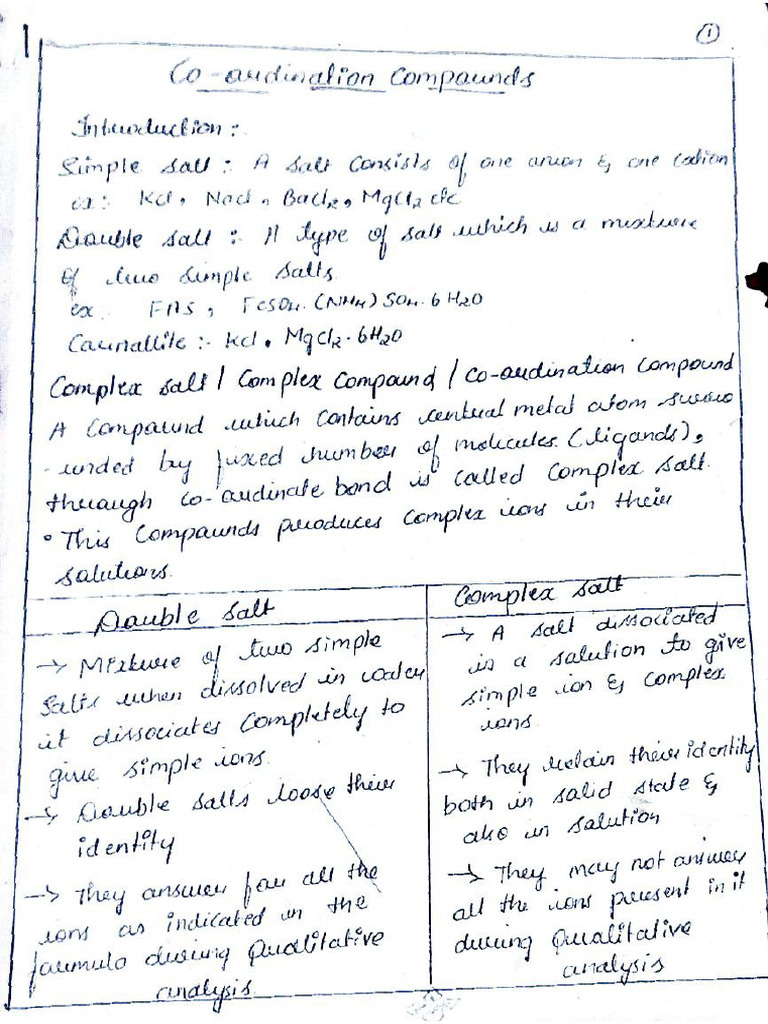 1
Co-ordination Compounds
Introduction :-
Simple salt :- A salt consists of one anion & one cation
ex:- KCl, NaCl, BaCl2, MgCl2 etc
Double salt :- A type of salt which is a mixture
of two simple salts
ex:- FAS, FeSO4.(NH4)SO4.6H2O
Carnallite :- KCl. MgCl2.6H2O
Complex salt / Complex Compound / Co-ordination Compound
A Compound which contains central metal atom surro
-unded by fixed number of molecules (ligands),
through co-ordinate bond is called Complex salt.
• This Compounds produces complex ions in their
solutions.
Double salt
→ Mixture of two simple
salts when dissolved in water
it dissociates completely to
give simple ions.
→ Double salts loose their
identity
→ They answer for all the
ions as indicated in the
formula during Qualitative
analysis
Complex salt
→ A salt dissociated
in a solution to give
simple ion & complex
ions.
→ They retain their identity
both in solid state &
also in solution
→ They may not answer
all the ions present in it
during Qualitative
analysis